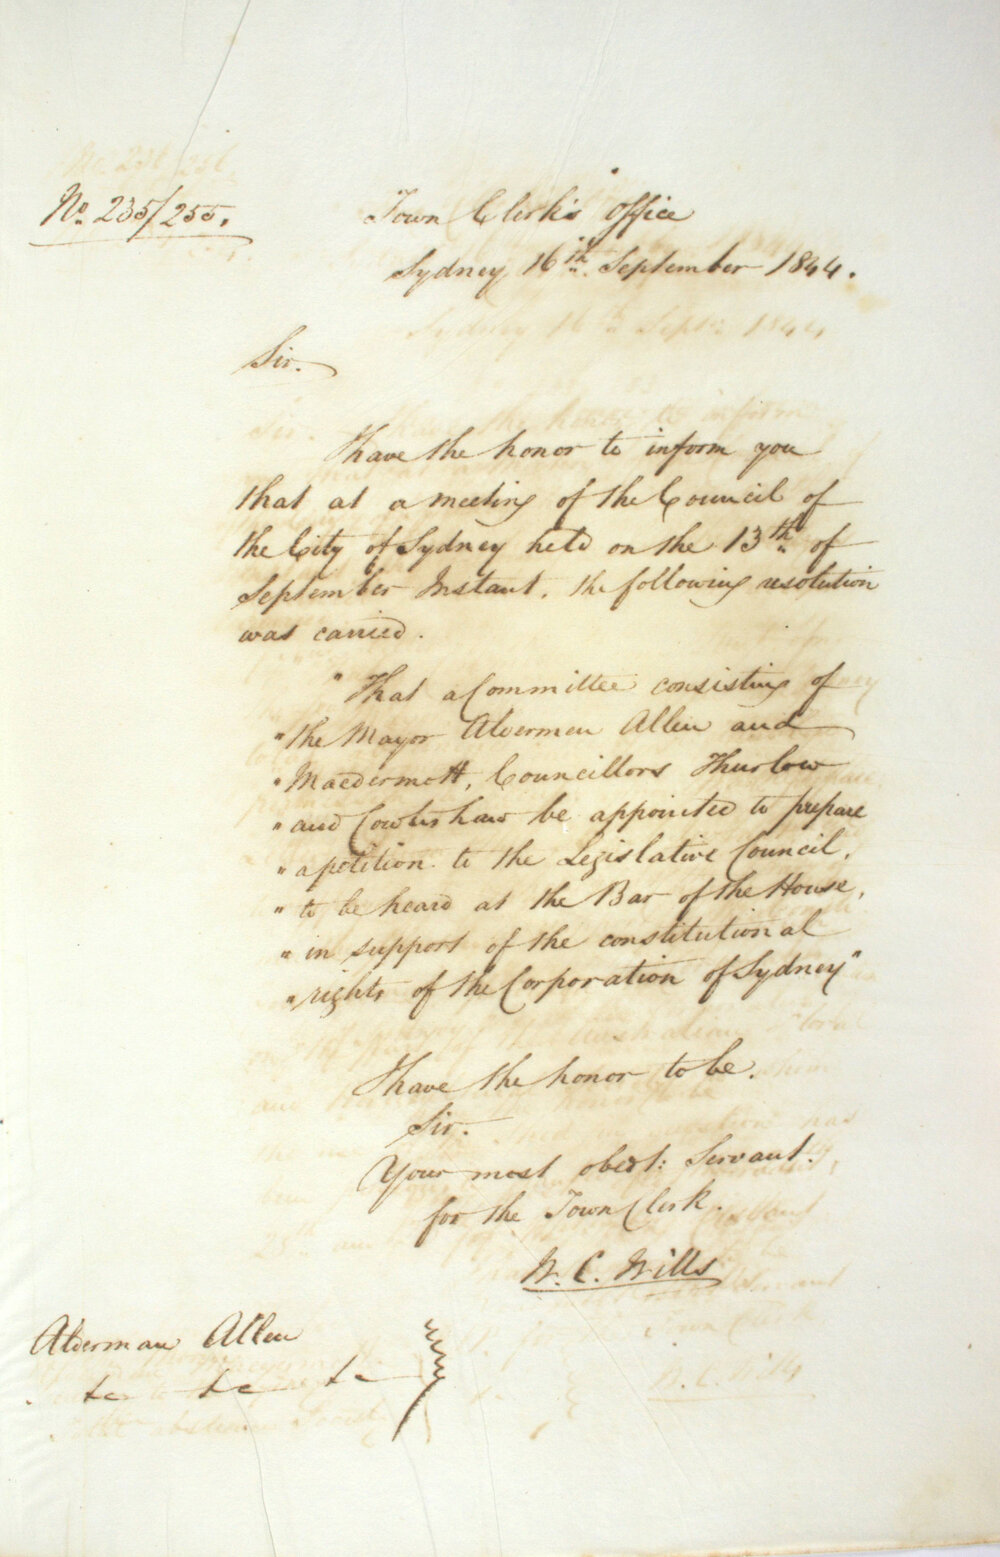 No. 235/255.
Town Clerk's Office
Sydney 16th. September 1844.
Sir.
I have the honor to inform you
that at a meeting of the Council of
the City of Sydney held on the 13th. of
September Instant, the following resolution
was carried.
"That a Committee consisting of
"the Mayor Aldermen Allen and
"Macdermott, Councillors Thurlow
"and Cowlishaw be appointed to prepare
"a petition to the Legislative Council,
"to be heard at the Bar of the House,
"in support of the constitutional
"rights of the Corporation of Sydney"
I have the honor to be.
Sir.
Your most obedt: Servant.
for the Town Clerk.
W. C. Wills
Alderman Allen
&c &c &c